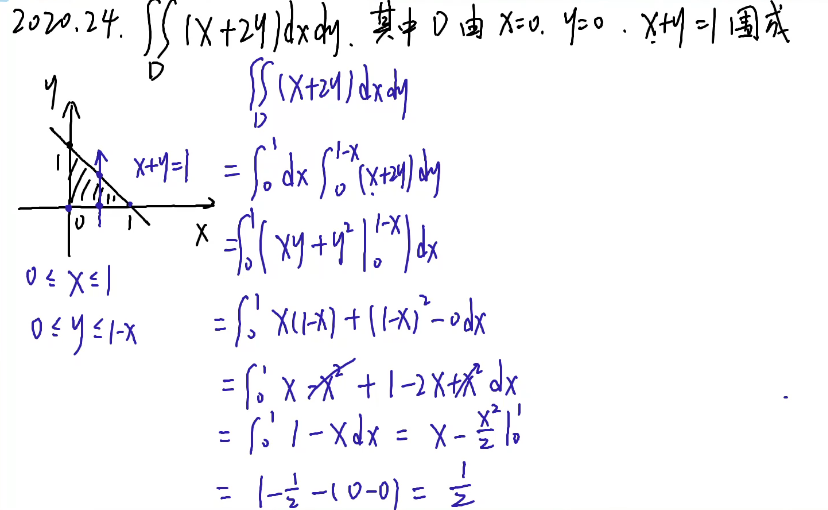 2020.24. ∬_D (x+2y)dxdy. 其中 D 由 x=0. y=0. x+y=1 围成
y
1
x+y=1
0
1
x
0≤x≤1
0≤y≤1-x
∬_D (x+2y)dxdy
=∫₀¹dx∫₀^{1-x}(x+2y)dy
=∫₀¹(xy+y²|₀^{1-x})dx
=∫₀¹ x(1-x)+(1-x)²-0dx
=∫₀¹ x-x²+1-2x+x²dx
=∫₀¹ 1-xdx = x-x²/2|₀¹
= 1-1/2-(0-0)=1/2